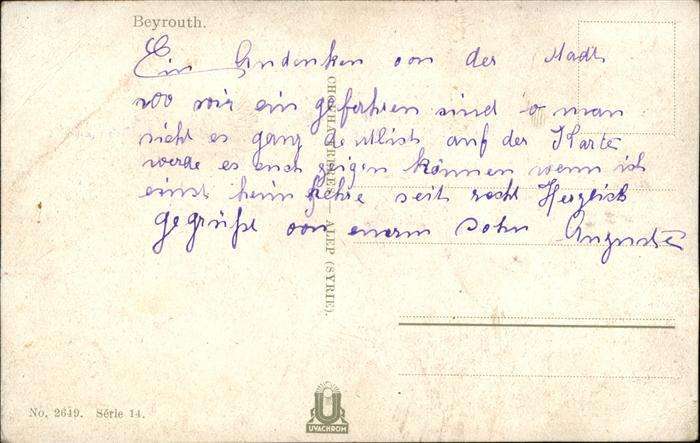 Beyrouth.
Ein Andenken von der Stadt
wo wir ein gefahren sind o man
sieht es ganz deutlich auf der Karte
werde es euch zeigen können wenn ich
einst heim kehre seit recht Herzlich
gegrüßt von eurem Sohn Auguste
CHOUHA FRÈRES — ALEP (SYRIE).
No. 2649. Série 14.
U
UVACHROM